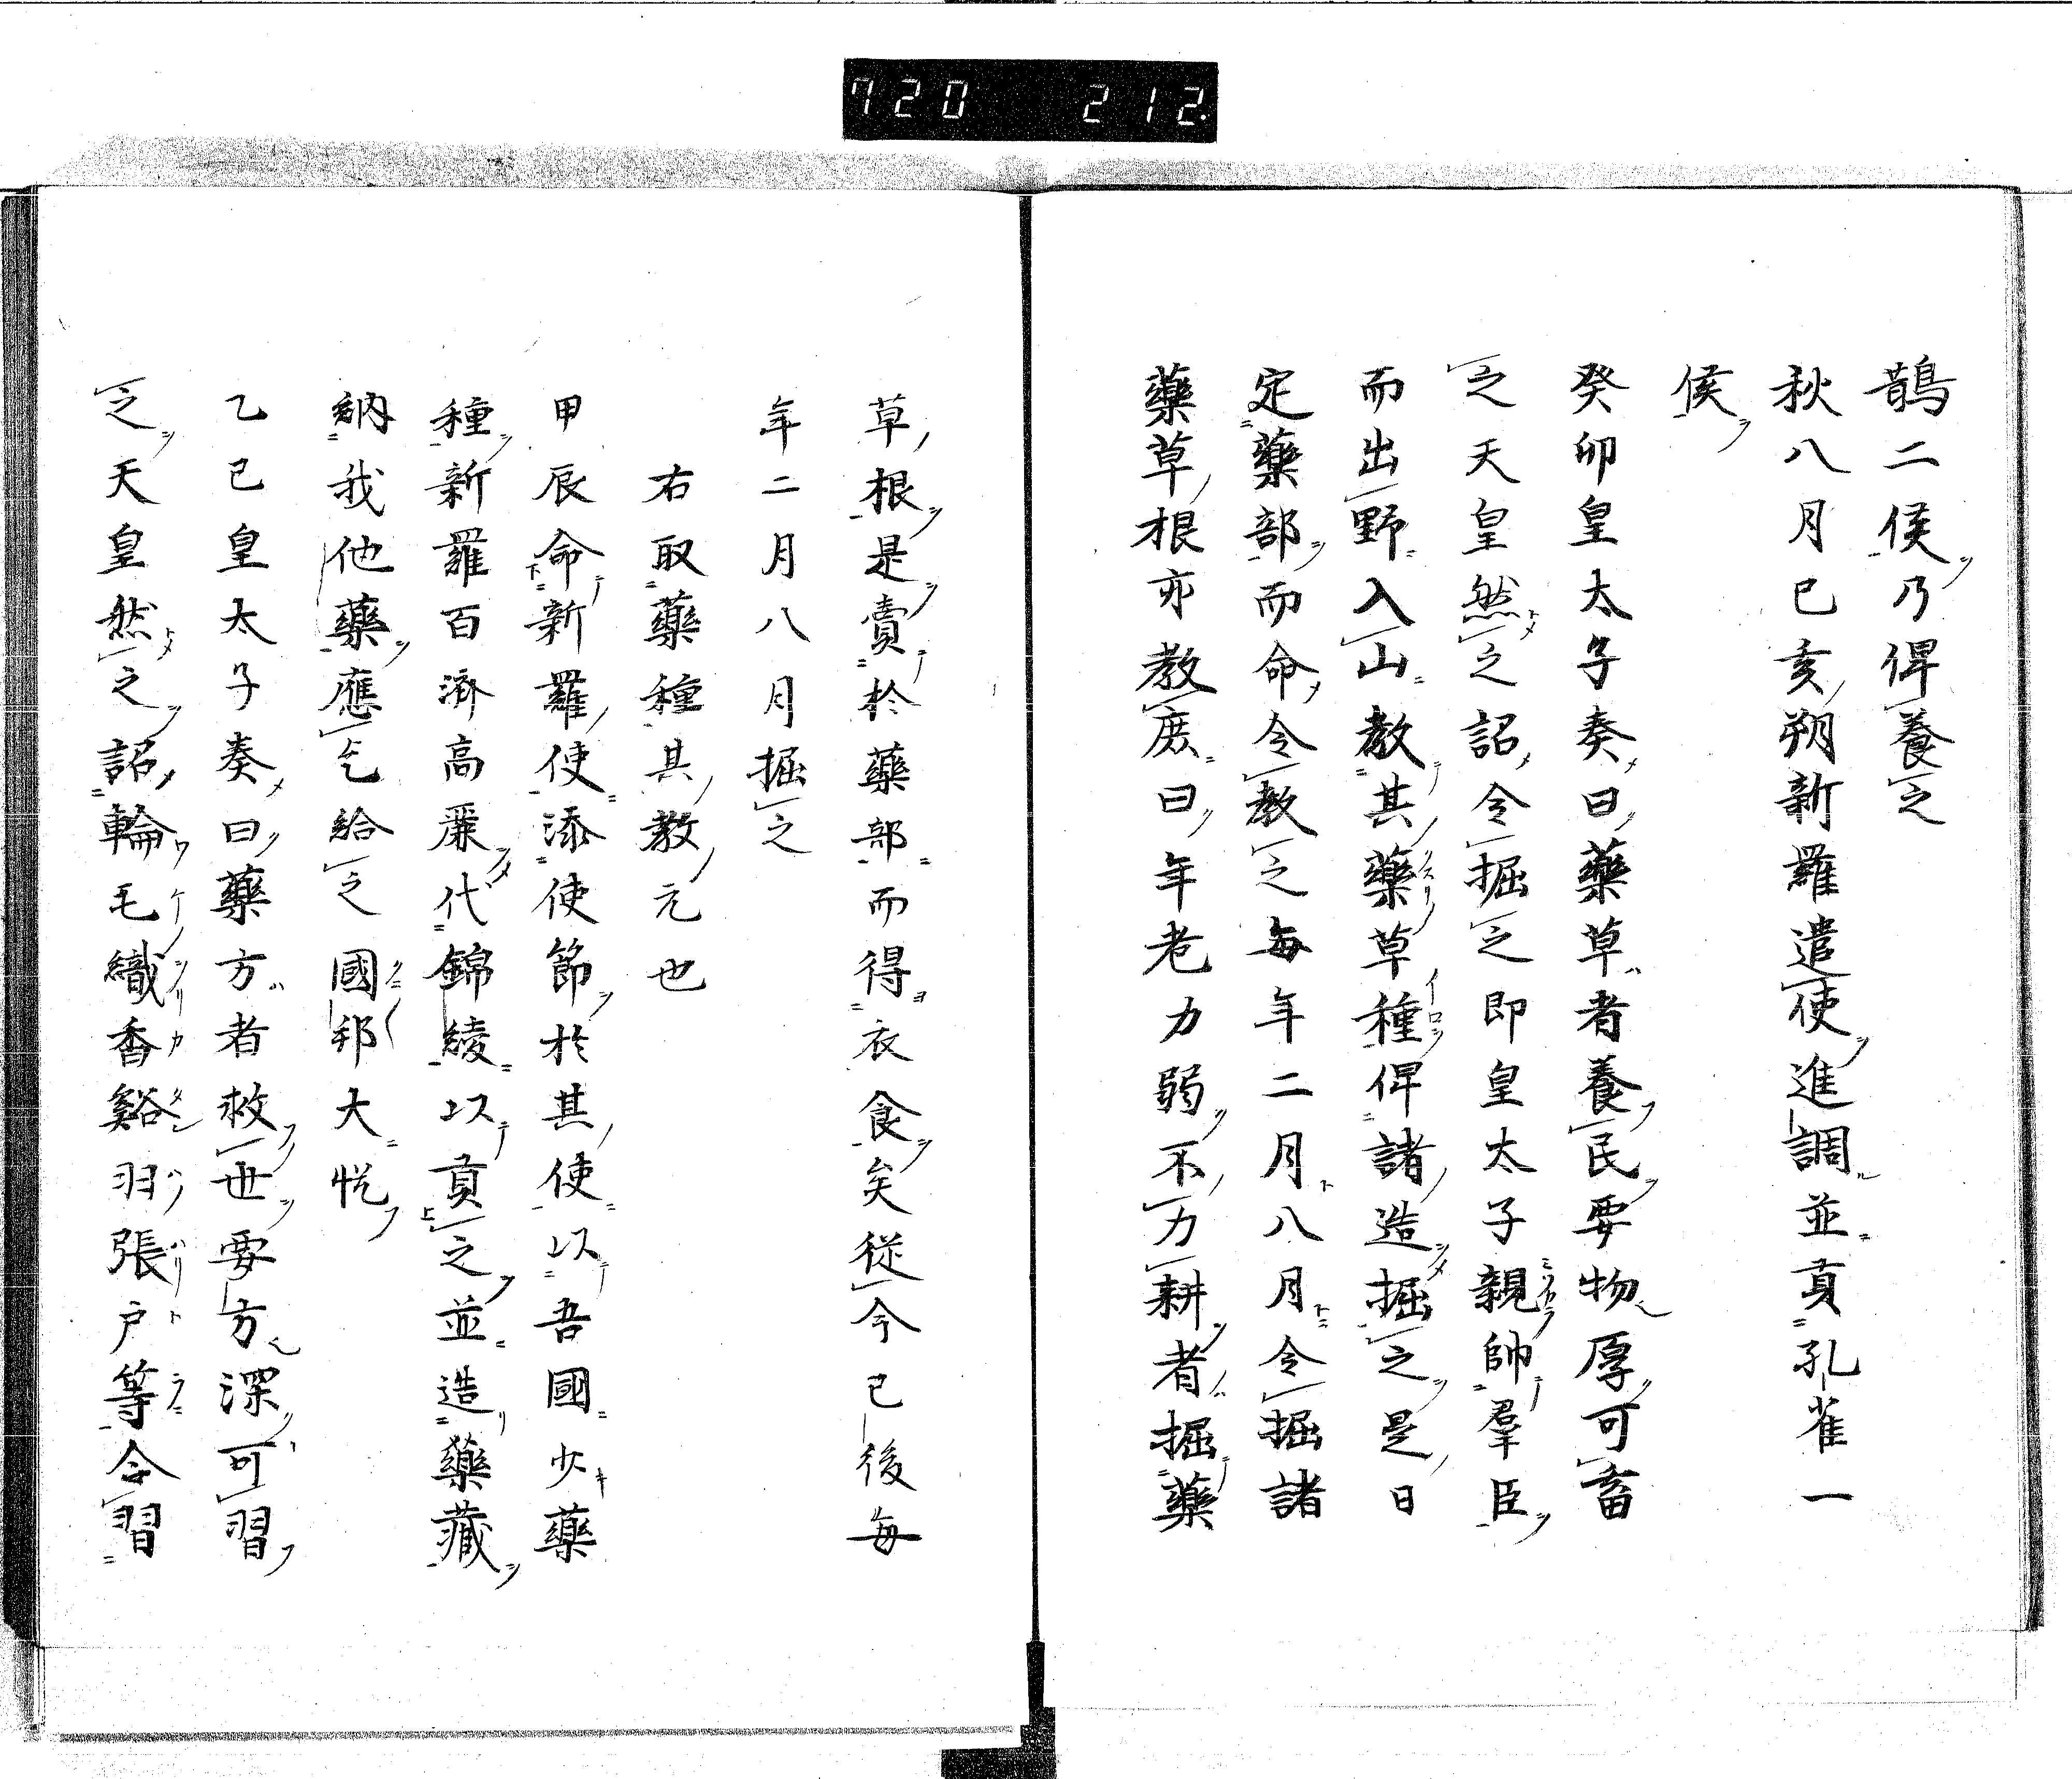 720 212.
鵲二侯乃俾養之
秋八月已亥朔新羅遣使進調並貢孔雀一
侯
癸卯皇太子奏曰藥草者養民要物厚可畜
之天皇然之詔令掘之即皇太子親帥羣臣
而出野入山教其藥草種俾諸造掘之是日
定藥部而命令教之每年二月八月令掘諸
藥草根亦教庶曰年老力弱不力耕者掘藥
草根是賣於藥部而得衣食矣從今已後每
年二月八月掘之
右取藥種其教元也
甲辰命新羅使添使節於其使以吾國少藥
種新羅百濟高麗代錦綾以貢之並造藥藏
納我他藥應乞給之國邦大悅
乙巳皇太子奏曰藥方者救世要方深可習
之天皇然之詔輪毛織香谿羽張戸等令習